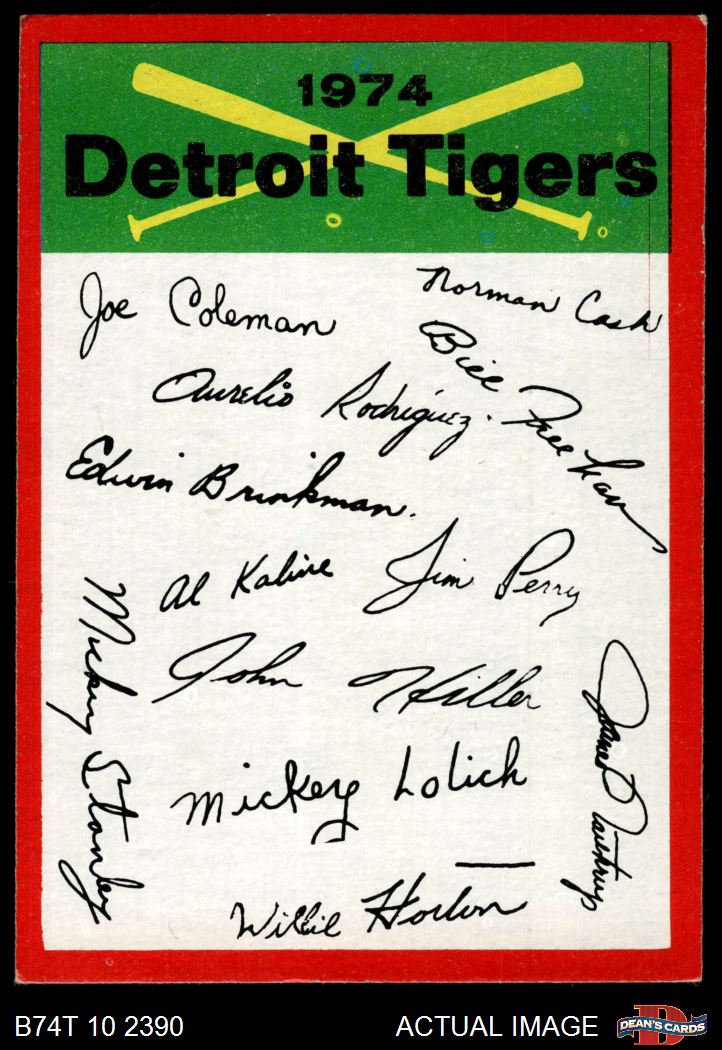 1974
Detroit Tigers
Joe Coleman
Norman Cash
Bill Freehan
Aurelio Rodriguez.
Edwin Brinkman.
Al Kaline
Jim Perry
Mickey Stanley
John Hiller
James Northrup
Mickey Lolich
Willie Horton
B74T 10 2390
ACTUAL IMAGE
D
DEAN'S CARDS